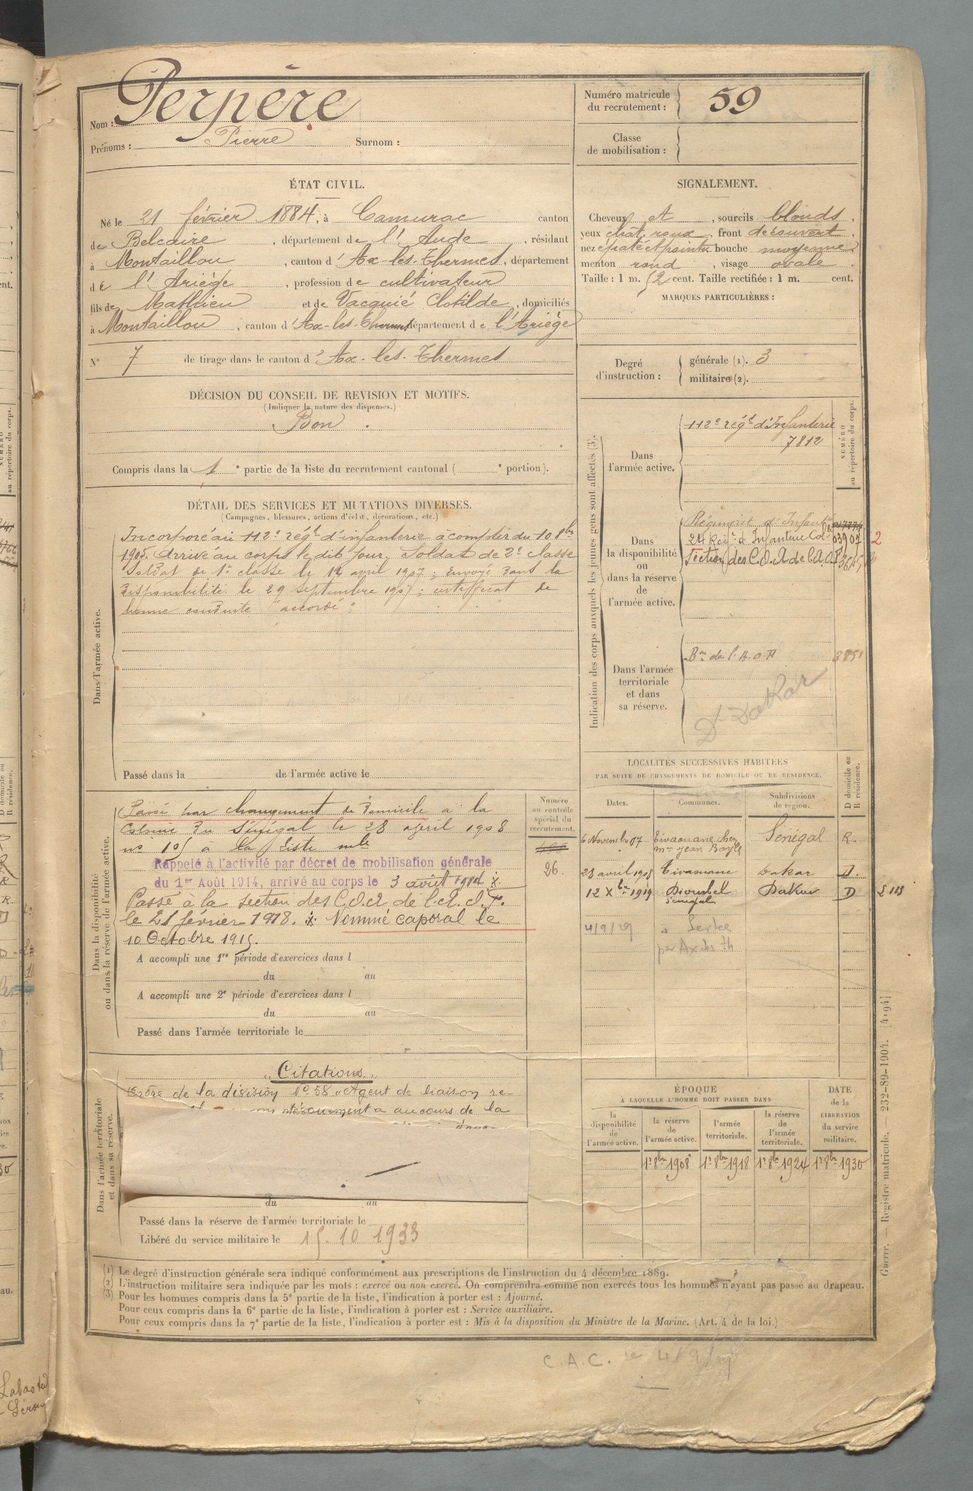 Nom : Perpère
Prénoms : Pierre Surnom :
Numéro matricule du recrutement : 59
Classe de mobilisation :
ÉTAT CIVIL.
Né le 21 février 1884, à Camurac canton
de Belcaire, département de l'Aude, résidant
à Montaillou, canton d'Ax-les-Thermes, département
de l'Ariège, profession de cultivateur
fils de Mathieu et de Vacquié Clotilde, domiciliés
à Montaillou, canton d'Ax-les-Thermes, département de l'Ariège
N° 7 de tirage dans le canton d'Ax-les-Thermes
SIGNALEMENT.
Cheveux et, sourcils blonds.
yeux chat. roux, front découvert
nez épaté et pointu bouche moyenne
menton rond, visage ovale.
Taille : 1 m. 62 cent. Taille rectifiée : 1 m. cent.
MARQUES PARTICULIÈRES :
Degré d'instruction : générale (1). 3
militaire (2).
DÉCISION DU CONSEIL DE REVISION ET MOTIFS.
(Indiquer la nature des dispenses.)
Bon.
Compris dans la 1e partie de la liste du recrutement cantonal ( e portion).
DÉTAIL DES SERVICES ET MUTATIONS DIVERSES.
(Campagnes, blessures, actions d'éclat, décorations, etc.)
Dans l'armée active.
Incorporé au 112e régt d'infanterie à compter du 10 8bre
1905. Arrivé au corps le dit jour, soldat de 2e classe
Soldat de 1e classe le 12 avril 1907 ; envoyé dans la
disponibilité le 29 septembre 1907 ; certificat de
bonne conduite "accordé".
Passé dans la de l'armée active le
Indication des corps auxquels les jeunes gens sont affectés (3).
NUMÉRO au répertoire du corps.
Dans l'armée active.
112e régt d'Infanterie
7812
Dans la disponibilité ou dans la réserve de l'armée active.
Régiment d'Infant
24 Régt d'Infanterie Col. 03907
Section des C.O.A. de l'A.O.F.
Dans l'armée territoriale et dans sa réserve.
Bon de l'A.O.F. 3851
Dt Dakar
LOCALITÉS SUCCESSIVES HABITÉES
PAR SUITE DE CHANGEMENTS DE DOMICILE OU DE RÉSIDENCE.
Dates. Communes. Subdivisions de région. D domicile ou R résidence.
6 Novembre 07 Tivaouane chez Mr Jean Bayle Sénégal R.
28 avril 1908 Tivaouane Dakar D.
12 Xbre 1919 Diourbel Sénégal Dakar D
S 113
4/9/29 par Ax les Th
Dans la disponibilité ou dans la réserve de l'armée active.
Numéro au contrôle spécial du recrutement.
26.
Passé par changement de domicile à la
Colonie du Sénégal le 28 april 1908
no 105 à la liste mle
Rappelé à l'activité par décret de mobilisation générale
du 1er Août 1914, arrivé au corps le 3 août 1914
Passé à la section des C.O.A. de l'A.O.F.
le 21 février 1918. Nommé caporal le
10 Octobre 1915.
A accompli une 1re période d'exercices dans l
du au
A accompli une 2e période d'exercices dans l
du au
Passé dans l'armée territoriale le
Dans l'armée territoriale et dans sa réserve.
"Citations"
Ordre de la division no 58. "Agent de liaison re-
au cours de la
du au
Passé dans la réserve de l'armée territoriale le
Libéré du service militaire le 15-10 1933
ÉPOQUE
À LAQUELLE L'HOMME DOIT PASSER DANS
DATE de la LIBÉRATION du service militaire.
la disponibilité de l'armée active. la réserve de l'armée active. l'armée territoriale. la réserve de l'armée territoriale.
1er 8bre 1908 1er 8bre 1918 1er 8bre 1924 1er 8bre 1930
(1) Le degré d'instruction générale sera indiqué conformément aux prescriptions de l'instruction du 4 décembre 1889.
(2) L'instruction militaire sera indiquée par les mots : exercé ou non exercé. On comprendra comme non exercés tous les hommes n'ayant pas passé au drapeau.
(3) Pour les hommes compris dans la 5e partie de la liste, l'indication à porter est : Ajourné.
Pour ceux compris dans la 6e partie de la liste, l'indication à porter est : Service auxiliaire.
Pour ceux compris dans la 7e partie de la liste, l'indication à porter est : Mis à la disposition du Ministre de la Marine. (Art. 4 de la loi.)
Guerre. — Registre matricule. — 232-89-1904. [4194]
C.A.C. le 4/9/29